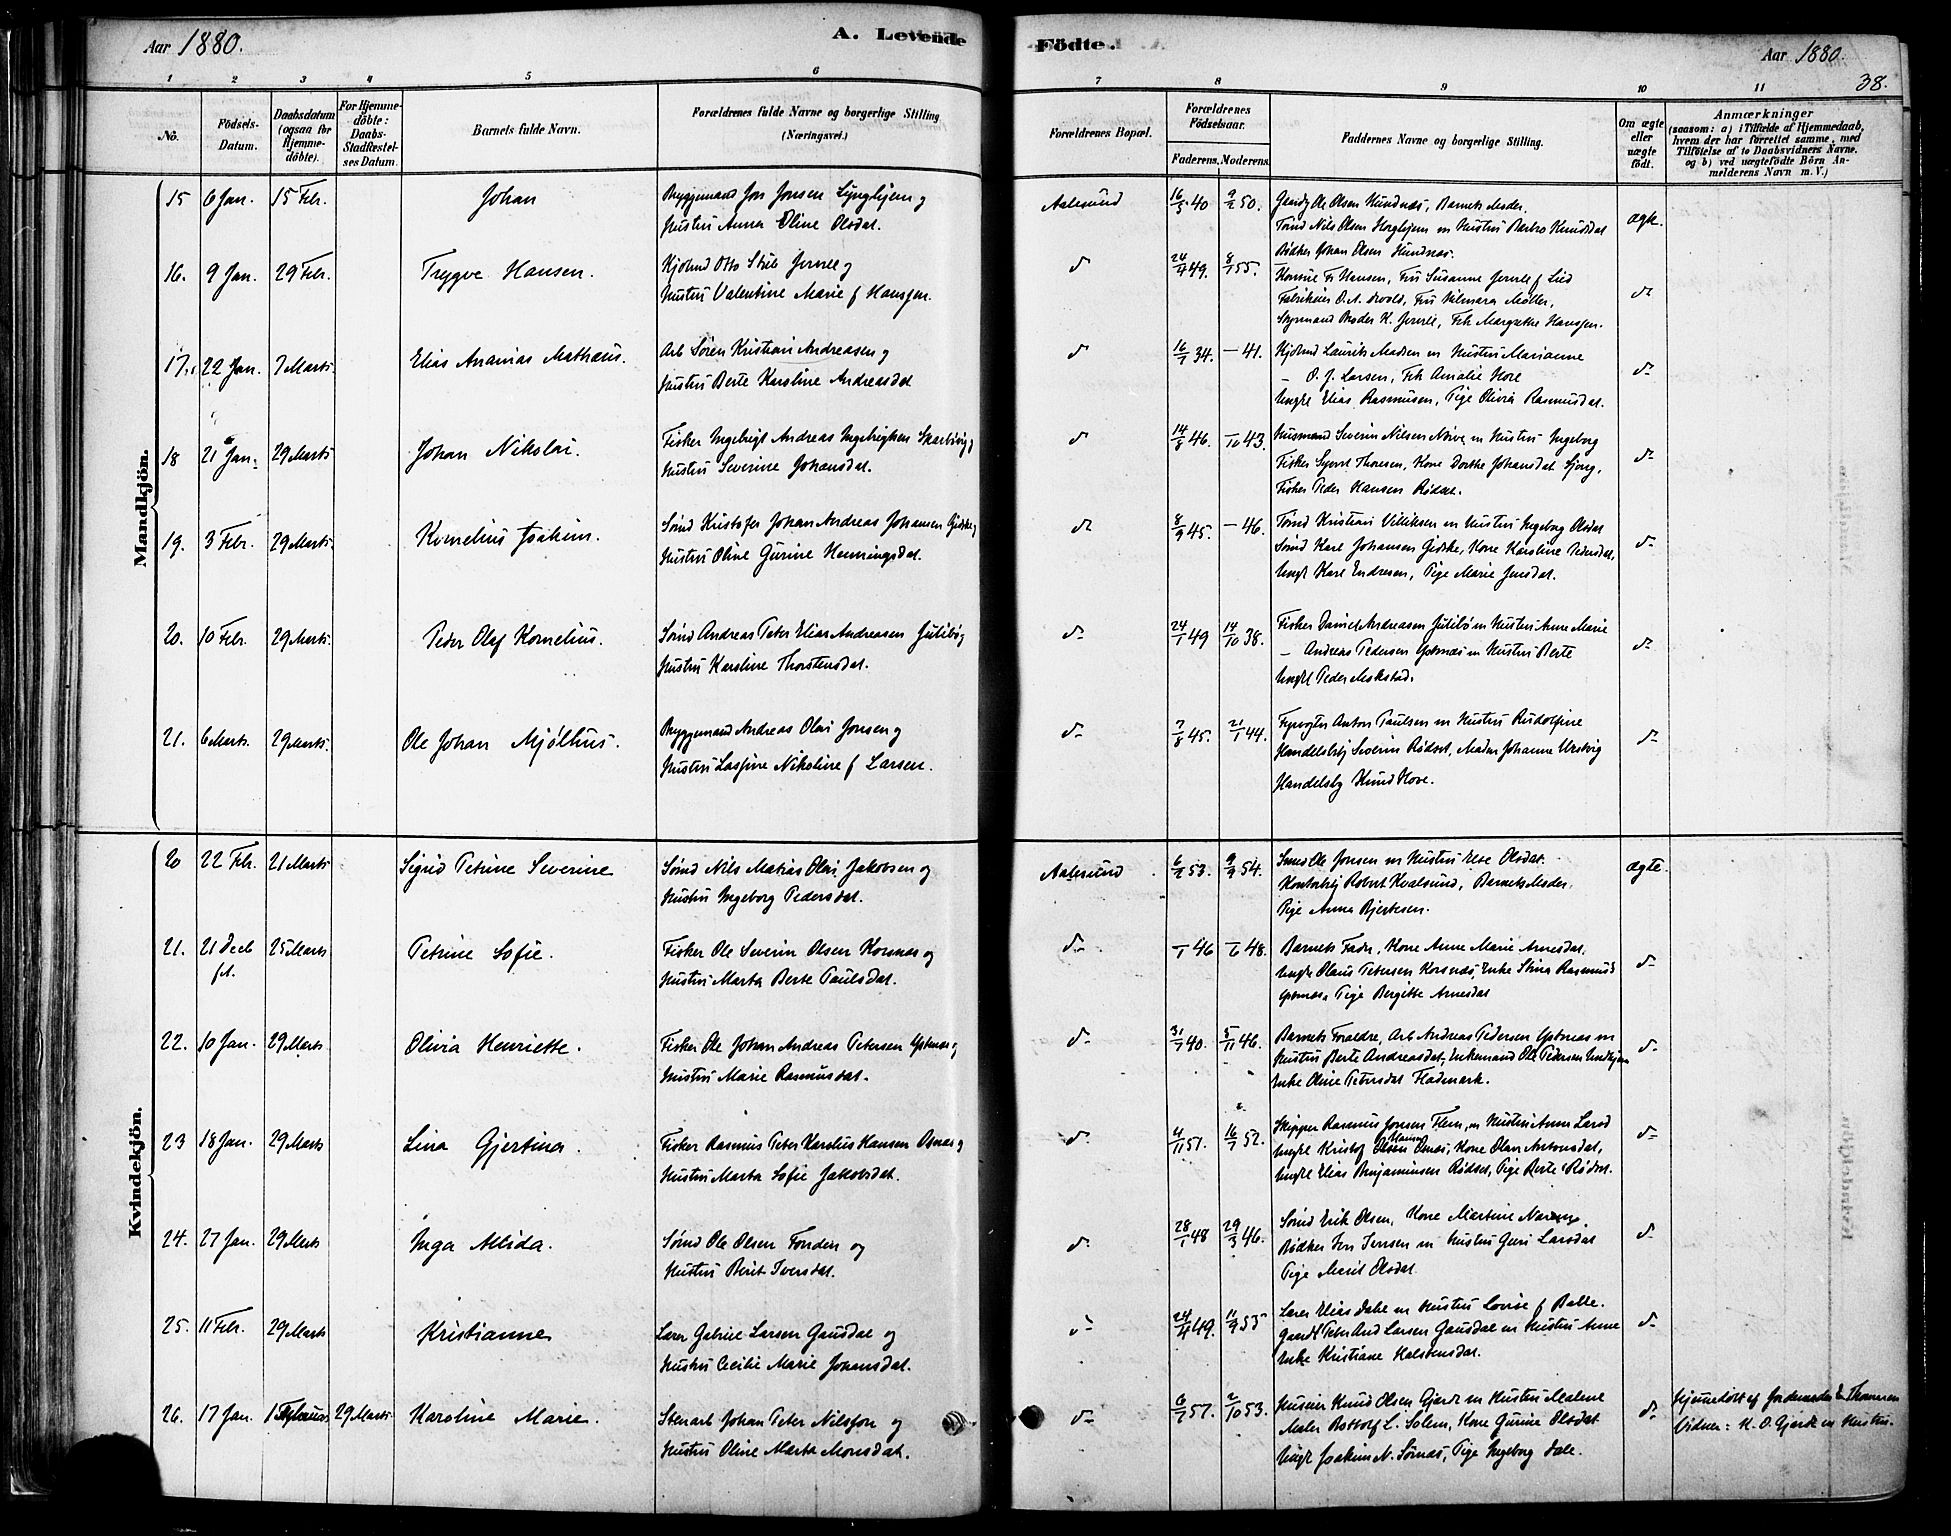 Aar 1880.
A. Levende
Födte.
Aar 1880.
38.
1 2 3 4 5 6 7 8 9 10 11
No.
Födsels-Datum.
Daabsdatum (ogsaa for Hjemme-döbte).
For Hjemme-döbte: Daabs-Stadfæstel-ses Datum.
Barnets fulde Navn.
Forældrenes fulde Navne og borgerlige Stilling (Næringsvei.)
Forældrenes Bopæl.
Forældrenes Födselsaar.
Faderens. Moderens.
Faddernes Navne og borgerlige Stilling.
Om ægte eller uægte födt.
Anmærkninger
(saasom: a) i Tilfælde af Hjemmedaab,
hvem der har forrettet samme, med
Tilföielse af to Daabsvidners Navne.
og b) ved uægtefödte Börn An-
melderens Navn m. V.)
Mandkjön.
15 6 Jan. 15 Febr. Johan
Byggemand Jon Jonsen og
Hustru Anna Oline Olsdat.
Aalesund 16/5 40 9/2 50.
Ole Olsen Hundnæs, Barnets Moder.
Nils Olsen m Hustru Barbro Knudsdat
Bødker Johan Olsen Hundnæs.
ægte.
16. 9 Jan. 29 Febr. Trygve Hansen.
Kjøbmd Otto Jervell og
Hustru Valentine Marie f Hansen.
do 24/4 49. 8/1 55.
Konsul Fr Hansen, Fru Susanne Jervell f Lied
Fabrikeier O. A. Devold, Fru Vilmara Møller,
Styrmand Peder K. Jervell, Frk Margrethe Hansen.
do
17. 22 Jan. 7 Marts. Elias Ananias Mathæus.
Arb Søren Kristian Andreasen og
Hustru Berte Karoline Andreasdat
do 16/1 34. – 41.
Kjøbmd Laurits Madsen m Hustru Marianne
– O. J. Larsen, Frk Amalie Hove
Ungkl Elias Rasmussen, Pige Olivia Rasmusdat.
do
18 21 Jan. 29 Marts Johan Nikolai.
Fisker Ingebrigt Andreas Ingebrigtsen og
Hustru Severine Johansdat.
do 14/8 46. –/10 43.
Husmand Severin Nilsen m Hustru Ingeborg
Fisker Thoresen, Kone Dorthe Johansdat
Fisker Peder Hansen Rødset.
do
19. 3 Febr. 29 Marts. Kornelius Joakim.
Sømd Kristofer Johan Andreas Johansen Gidske og
Hustru Oline Gurine Henningsdat.
do 8/9 45. – 46.
Kristian Villiksen m Hustru Ingeborg Olsdat
Sømd Karl Johansen Gidske, Kone Karoline Pedersdat,
Ungkl Karl Endresen, Pige Marie Jensdat.
do
20. 10 Febr. 29 Marts. Peder Olaf Kornelius.
Sømd Andreas Peter Elias Andreasen og
Hustru Karoline Thorstensdat.
do 24/1 49 14/10 38.
Fisker Daniel Andreasen m Hustru Anne Marie
– Andreas Pedersen m Hustru Berte
Ungkl Peder Mokstad.
do
21. 6 Marts. 29 Marts. Ole Johan Mjølhus.
Byggemand Andreas Olai Jonsen og
Hustru Nikoline f Larsen.
do 7/8 45. 21/1 44.
Fyrvogter Anton Paulsen m Hustru Rudolfine
Handelsbtj Severin Rødset, Madam Johanne
Handelsbtj Knud Hove.
do
Kvindekjön.
20 22 Febr. 21 Marts Sigrid Petrine Severine
Sømd Nils Matias Olai Jakobsen og
Hustru Ingeborg Pedersdat.
Aalesund 6/2 53. 9/9 54.
Smed Ole Jonsen m Hustru Else Olsdat.
Kontorbtj Robert Kvalsund, Barnets Moder.
Pige Anna Bjertesen.
ægte.
21. 21 Decb f.A. 25 Marts Petrine Sofie.
Fisker Ole Severin Olsen Korsnæs og
Hustru Marta Berte Paulsdat.
do –/1 46 –/6 48.
Barnets Fader, Kone Anne Marie Arnesdat.
Ungkl Olaus Petersen Korsnæs, Enke Stina Rasmusd
Pige Bergitte Arnesdat
do
22. 10 Jan. 29 Marts Olivia Henriette.
Fisker Ole Johan Andreas Petersen og
Hustru Marie Rasmusdat.
do 31/7 40. 5/11 46.
Barnets Forældre, Arb Andreas Pedersen m
Hustru Berte Andreasdat, Enkemand Ole Pedersen
Enke Oline Petersdat Flademark.
do
23 18 Jan. 29 Marts Lina Gjertina.
Fisker Rasmus Peter Karolus Hansen og
Hustru Marta Sofie Jakobsdat.
do 4/11 51. 16/7 52.
Skipper Rasmus Jonsen Flem, m Hustru Anna Larsd
Ungkl Kristof Hansen, Kone Olave Antonsdat,
Ungkl Elias Benjaminsen Rødset, Pige Berte Rødset.
do
24. 27 Jan. 29 Marts Inga Alida.
Sømd Ole Olsen Fonden og
Hustru Berit Iversdat.
do 28/1 48 29/3 46.
Sømd Erik Olsen, Kone Martine
Bødker Iver Iversen m Hustru Guri Larsdat
Pige Marit Olsdat
do
25. 11 Febr. 29 Marts Kristianne
Lærer Gabriel Larsen Gausdal og
Hustru Cecilie Marie Johansdat.
do 24/4 49. 11/9 55
Lærer Elias Dahl m Hustru Lovise f Balle.
Gaardbr Peter And Larsen Gausdal m Hustru Anne
Enke Kristiane Halstensdat.
do
26. 17 Jan. 29 Marts Karoline Marie.
Stenarb Johan Peter Nilsson og
Hustru Oline Marta Monsdat.
do 6/7 57. 2/10 53.
Huseier Knud Olsen Gjerde m Hustru Malene
Maler Bottolf L. Solem, Kone Gurine Olsdat
Ungkl Joakim N. Sørnæs, Pige Ingeborg Dale.
do
Hjemmedøbt af Jordemoder Thomsen
Vidner: K. O. Gjerde m Hustru.